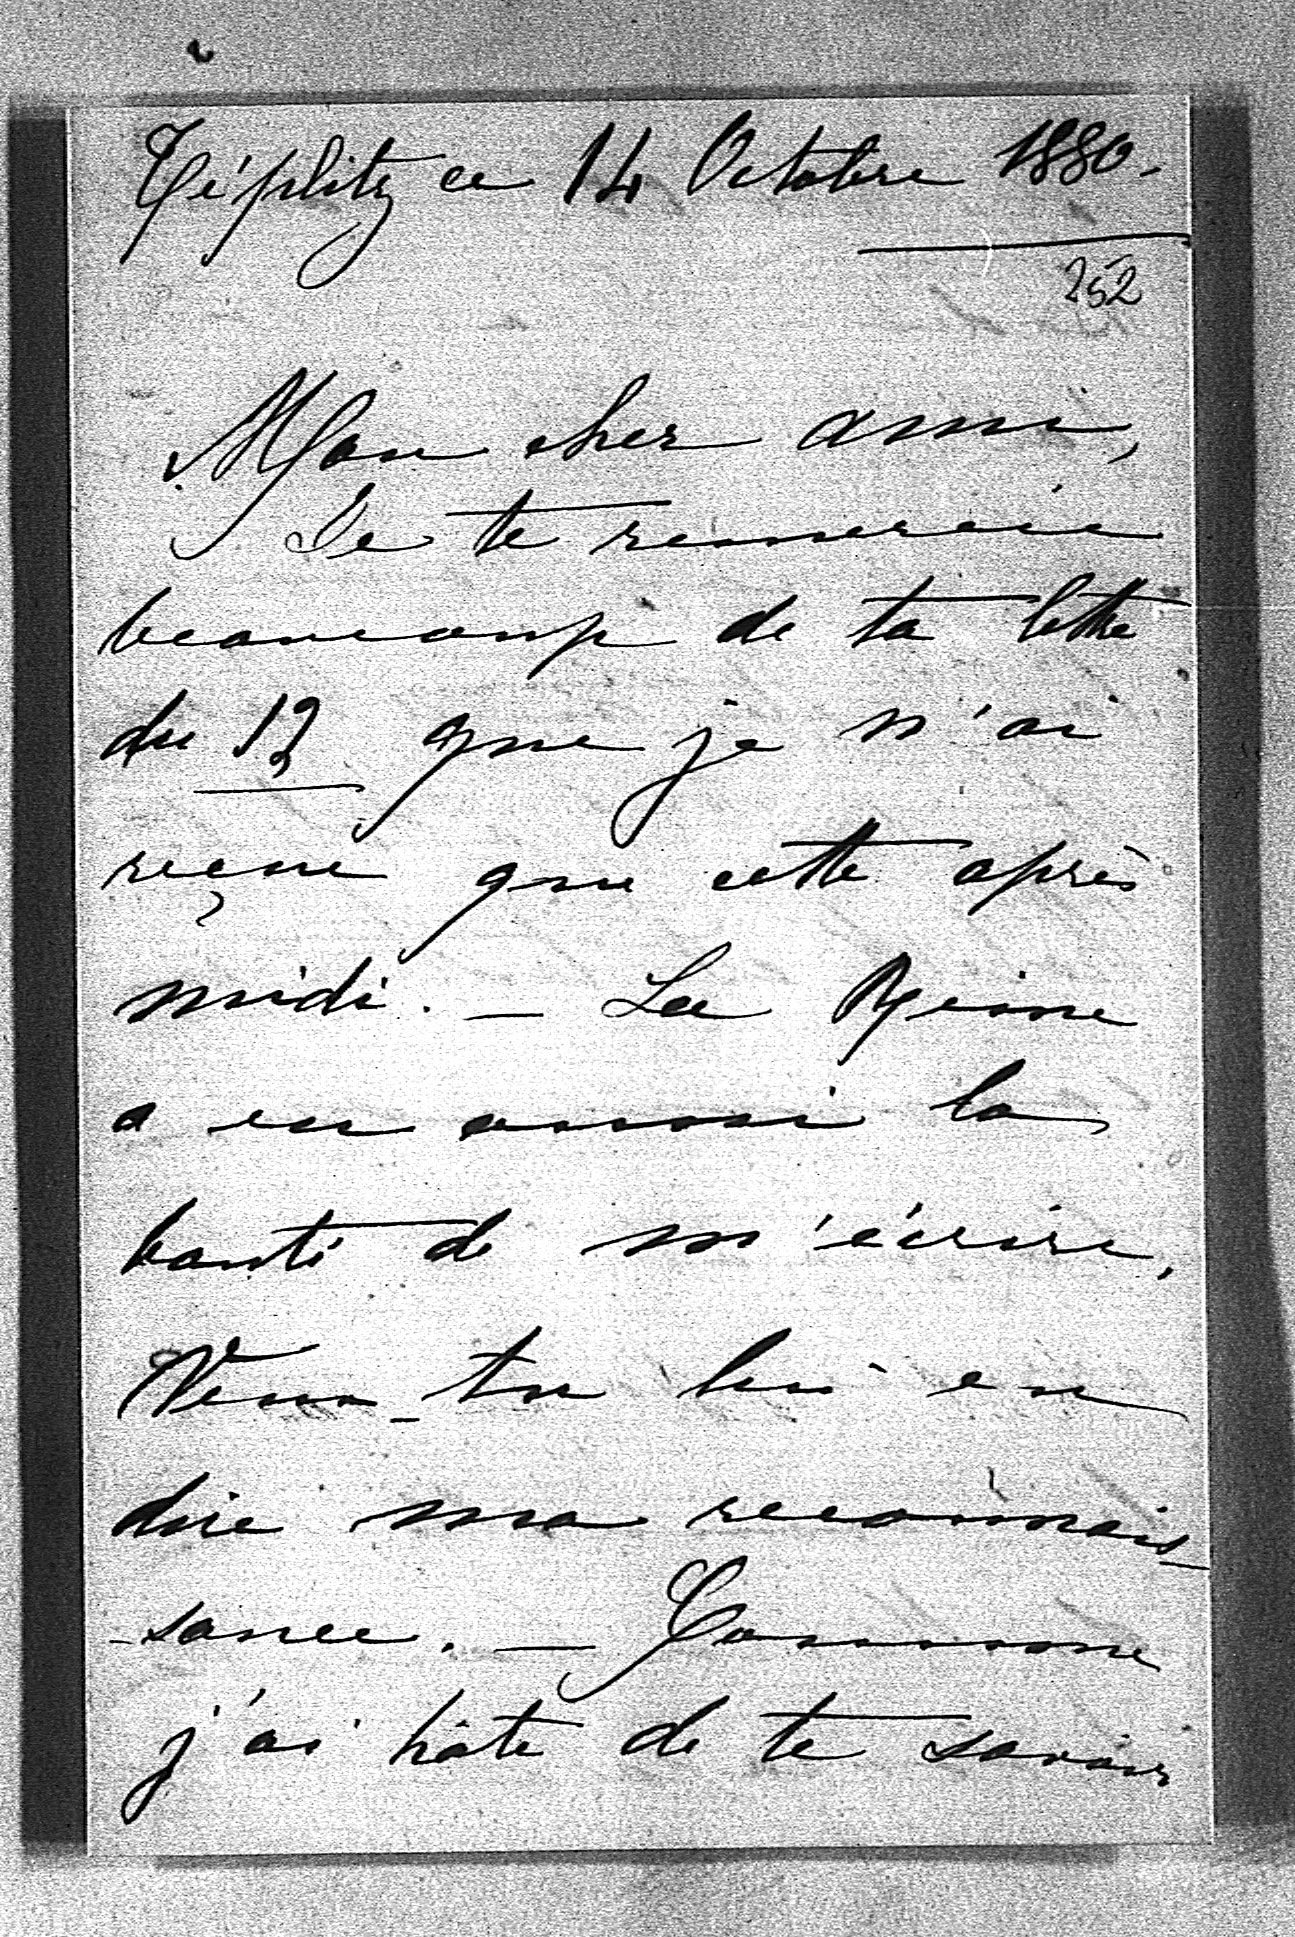 Téplitz ce 14 Octobre 1880.
252
Mon cher ami,
Je te remercie
beaucoup de ta lettre
du 12 que je n'ai
reçue que cette après
midi. _ La Reine
a eu aussi la
bonté de m'écrire,
Veux-tu lui en
dire ma reconnais-
-sance. _ Comme
j'ai hâte de te savoir